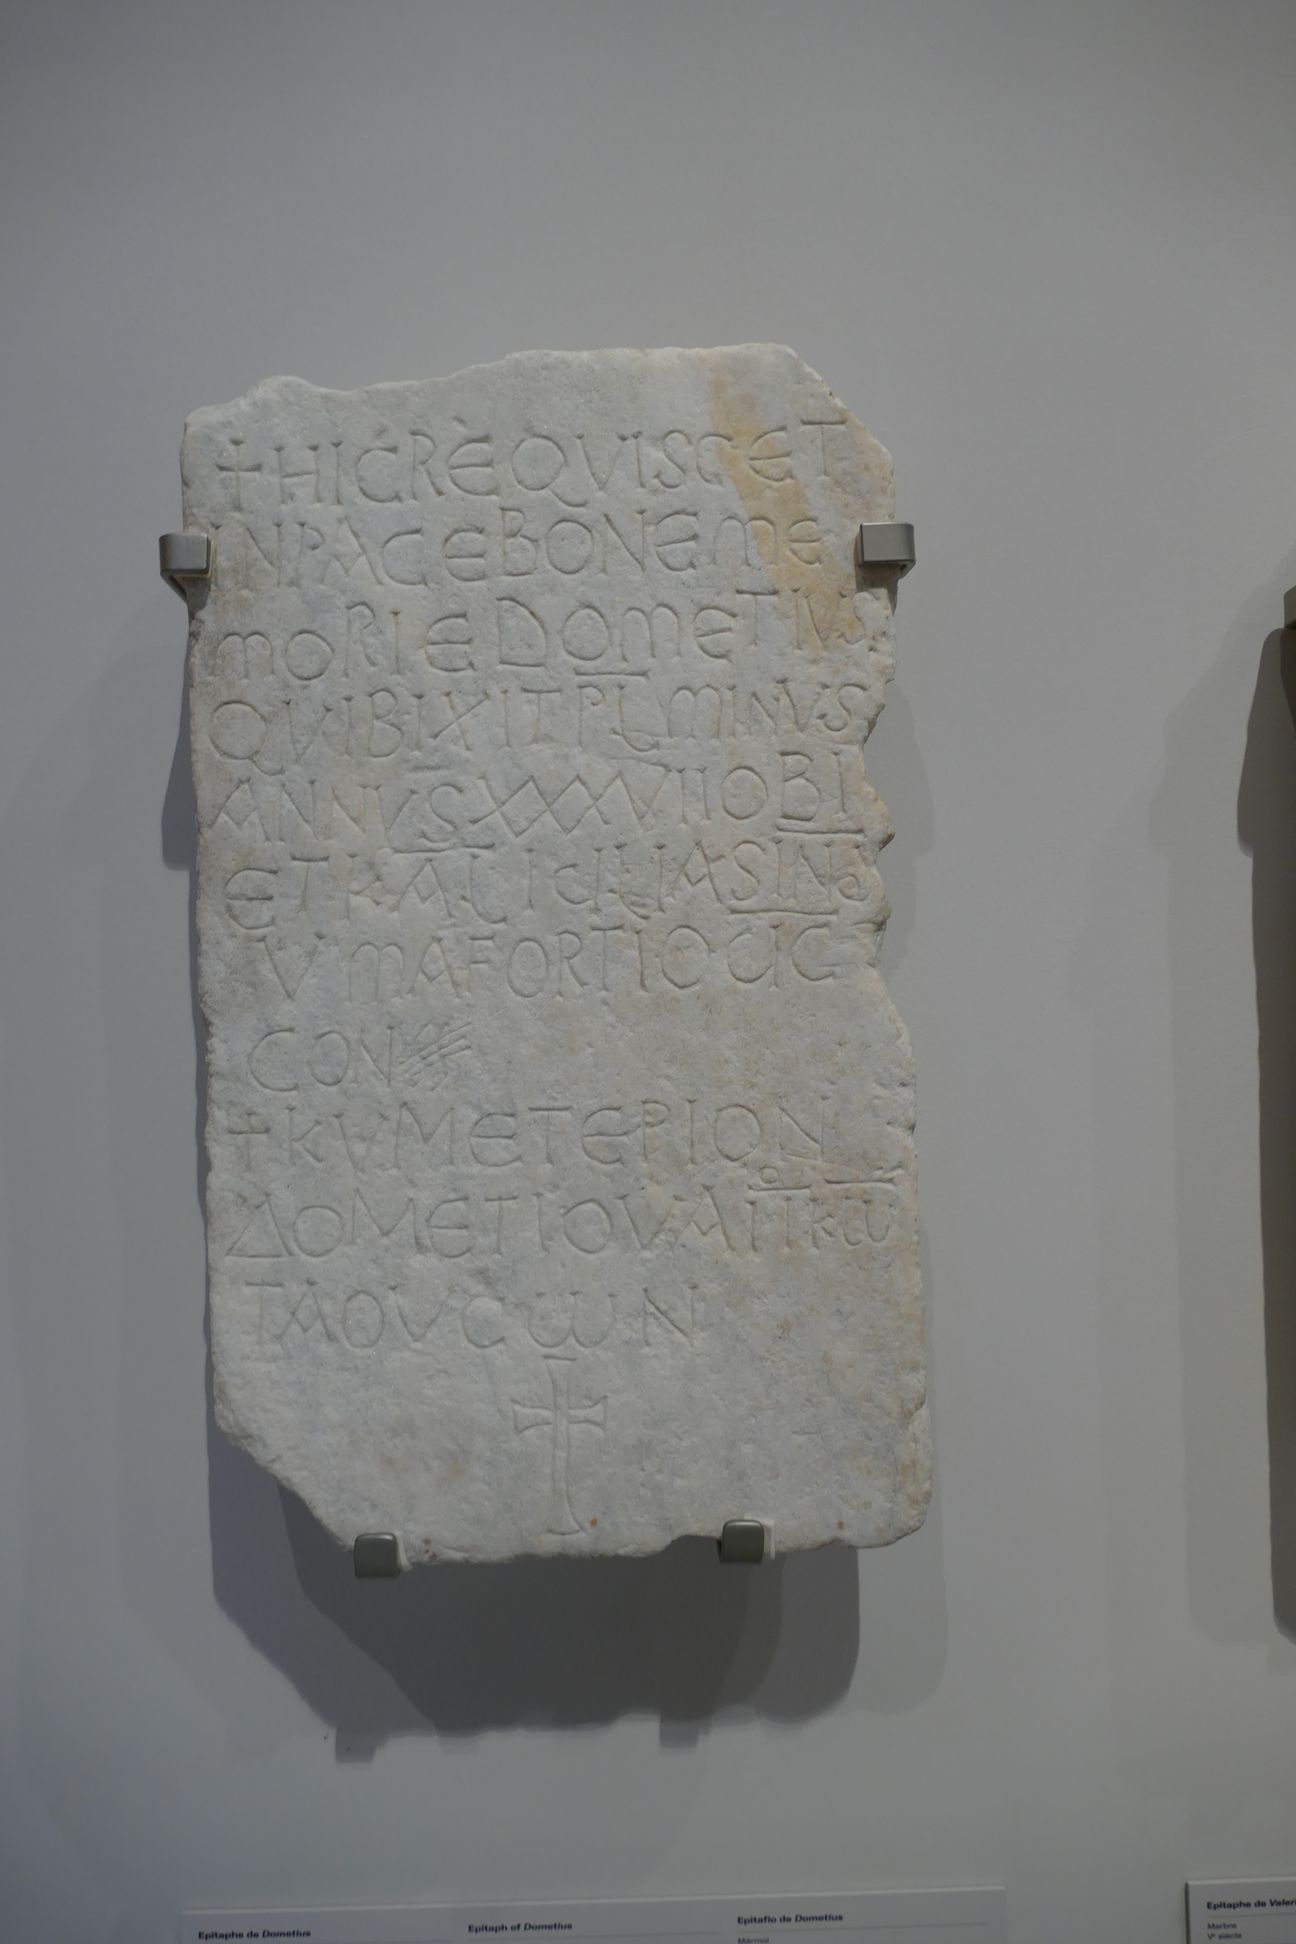 + HIC REQVISCET
IN PACE BONE ME
MORIE DOMETIUS
QVI BIXIT PL MINVS
ANNVS XXXVII OBI
ET KAL ICILIAS IND
V MAFORTIO C C
CON
+ KVMETEPION
ΔOMETIOV AΠ Kω
TAOVC ωN
Epitaphe de Dometius
Epitaph of Dometius
Epitafio de Dometius
Mármol
Epitaphe de Valeri
Marbre
Vᵉ siècle